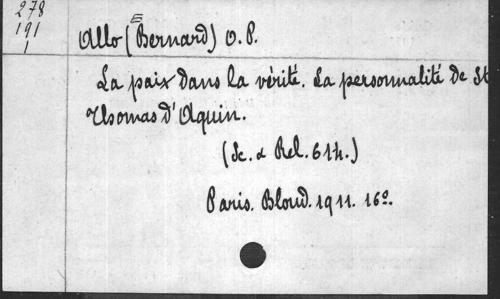 278
191
1
Allo (Bernard) O.P.
La paix dans la vérité. La personnalité de St
Thomas d'Aquin.
(Sc. & Rel. 614.)
Paris. Bloud. 1911. 16º.